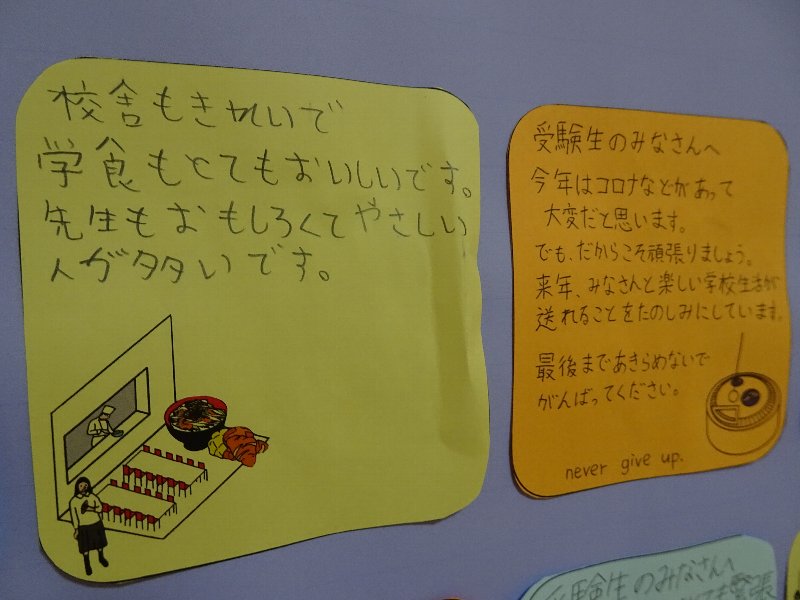 校舎もきれいで
学食もとてもおいしいです。
先生もおもしろくてやさしい
人が多いです。
受験生のみなさんへ
今年はコロナなどがあって
大変だと思います。
でも、だからこそ頑張りましょう。
来年、みなさんと楽しい学校生活が
送れることをたのしみにしています。
最後まであきらめないで
がんばってください。
never give up.
受験生のみなさんへ
緊張